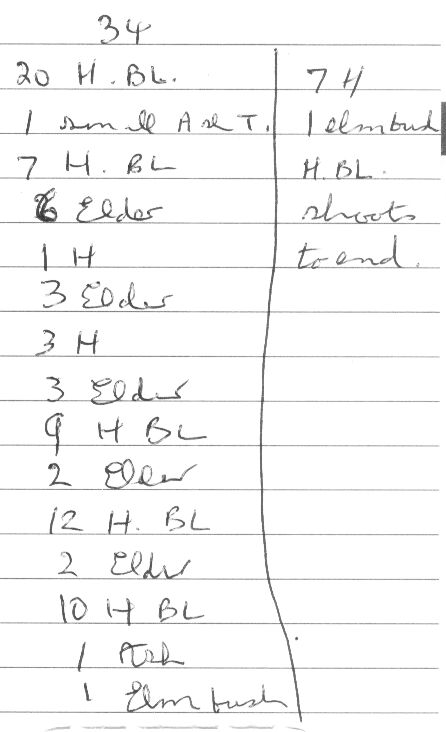 34
20 H. BL.
1 small Ash T.
7 H. BL
6 Elder
1 H
3 Elder
3 H
3 Elder
9 H BL
2 Elder
12 H. BL
2 Elder
10 H BL
1 Ash
1 Elm bush
7 H
1 elm bush
H. BL.
shoots
to end.